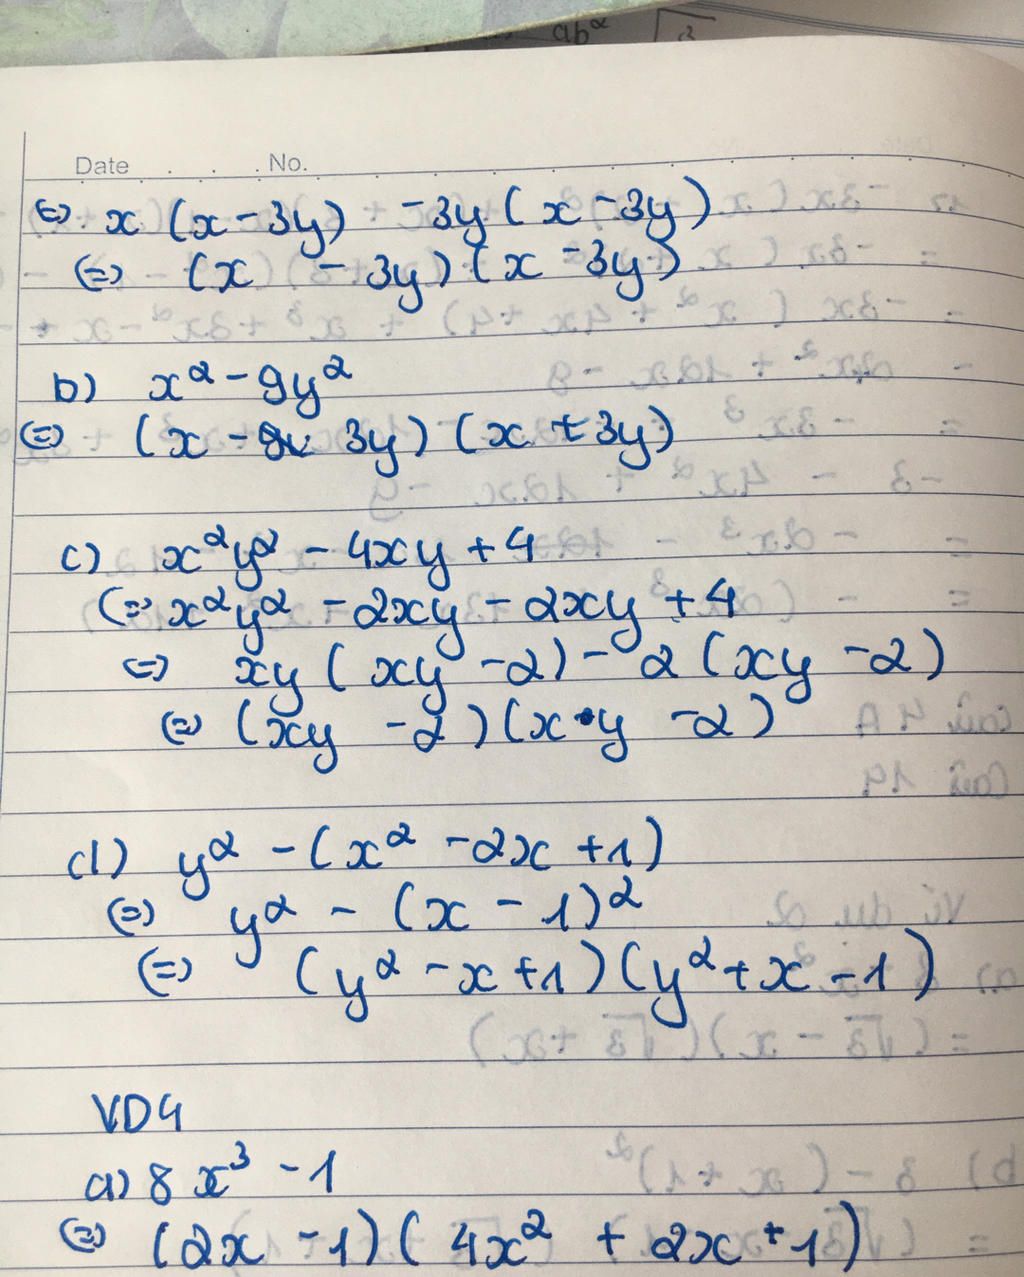 ab²
Date . . . . No.
(=) x (x - 3y) - 3y (x - 3y)
(=) (x - 3y) (x - 3y)
b) x² - 9y²
(=) (x - 3y) (x + 3y)
c) x²y² - 4xy + 4
(=) x²y² - 2xy - 2xy + 4
(=) xy (xy - 2) - 2 (xy - 2)
(=) (xy - 2) (x•y - 2)
d) y² - (x² - 2x + 1)
(=) y² - (x - 1)²
(=) (y² - x + 1) (y² + x - 1)
VD4
a) 8x³ - 1
(=) (2x - 1) (4x² + 2x + 1)